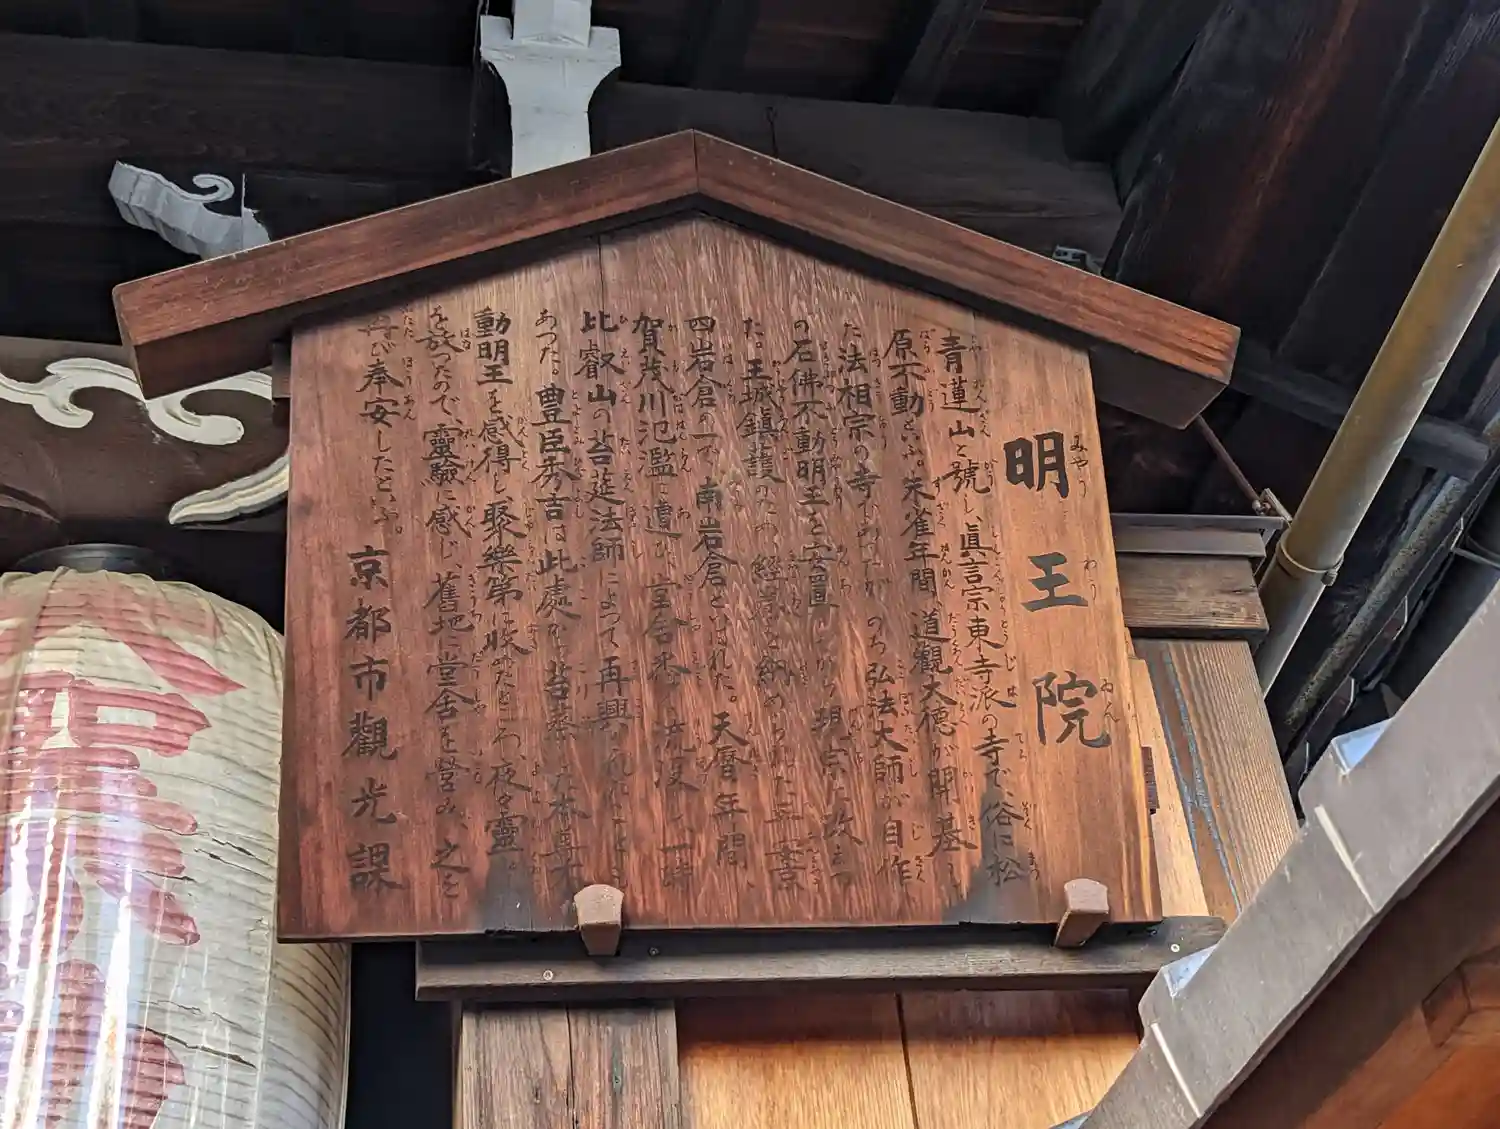 明王院
青蓮山と號し、眞言宗東寺派の寺で、俗に松
原不動といふ。朱雀年間、道觀大德が開基し
た法相宗の寺であつたが、のち弘法大師が自作
の石佛不動明王を安置し、眞言宗に改めら
た。王城鎮護のため、經巻を納められた
四岩倉の一で、南岩倉といはれた。天曆年間、
賀茂川氾濫に遭ひ、堂舎悉く流沒し、一時
比叡山の苔莚法師によつて再興されたことも
あつた。豊臣秀吉は此處から苔蒸した本尊不
動明王を感得し、聚樂第に收めたところ、夜々靈
を放つたので、靈驗に感じ、舊地に堂舍を營み、之を
再び奉安したといふ。
京都市觀光課